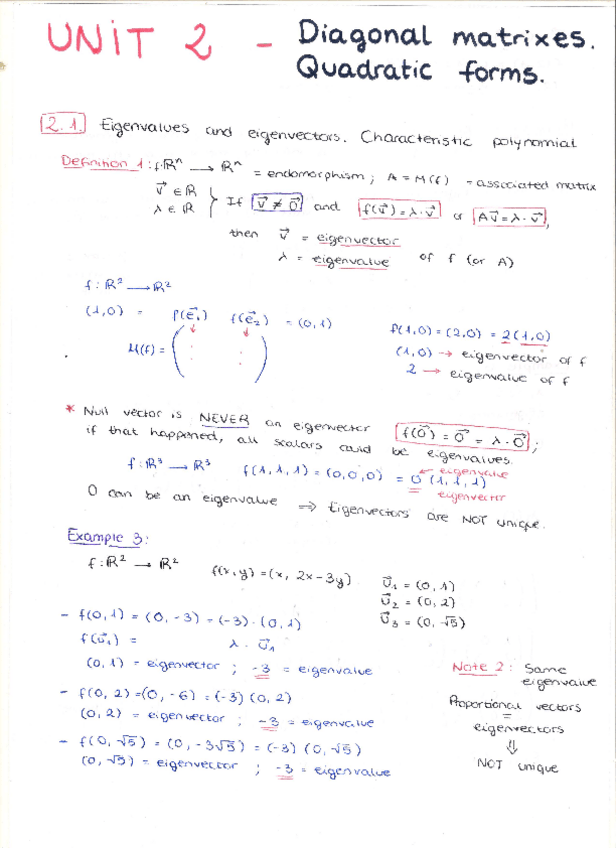 UNIT 2 - Diagonal matrixes.
Quadratic forms.
2.1. Eigenvalues and eigenvectors. Characteristic polynomial
Definition 1: f: ℝⁿ → ℝⁿ = endomorphism; A = M(f) = associated matrix
v⃗ ∈ ℝ
λ ∈ ℝ } If v⃗ ≠ 0⃗ and f(v⃗) = λ · v⃗ or Av⃗ = λ · v⃗,
then v⃗ = eigenvector
λ = eigenvalue of f (or A)
f: ℝ² → ℝ²
(1,0) = f(e⃗₁) f(e⃗₂) = (0,1)
M(f) = ( : : )
f(1,0) = (2,0) = 2(1,0)
(1,0) → eigenvector of f
2 → eigenvalue of f
* Null vector is NEVER an eigenvector f(0⃗) = 0⃗ = λ · 0⃗ ;
if that happened, all scalars could be eigenvalues.
f: ℝ³ → ℝ³ f(1,1,1) = (0,0,0) = 0 (1,1,1)
← eigenvalue
eigenvector
0 can be an eigenvalue ⇒ Eigenvectors are NOT unique.
Example 3:
f: ℝ² → ℝ² f(x,y) = (x, 2x-3y)
u⃗₁ = (0,1)
u⃗₂ = (0,2)
u⃗₃ = (0,√5)
- f(0,1) = (0,-3) = (-3)·(0,1)
f(u⃗₁) = λ · u⃗₁
(0,1) = eigenvector ; -3 = eigenvalue
- f(0,2) = (0,-6) = (-3)(0,2)
(0,2) = eigenvector ; -3 = eigenvalue
- f(0,√5) = (0,-3√5) = (-3) (0,√5)
(0,√5) = eigenvector ; -3 = eigenvalue
Note 2: Same
eigenvalue
Proportional vectors
=
eigenvectors
⇓
NOT unique